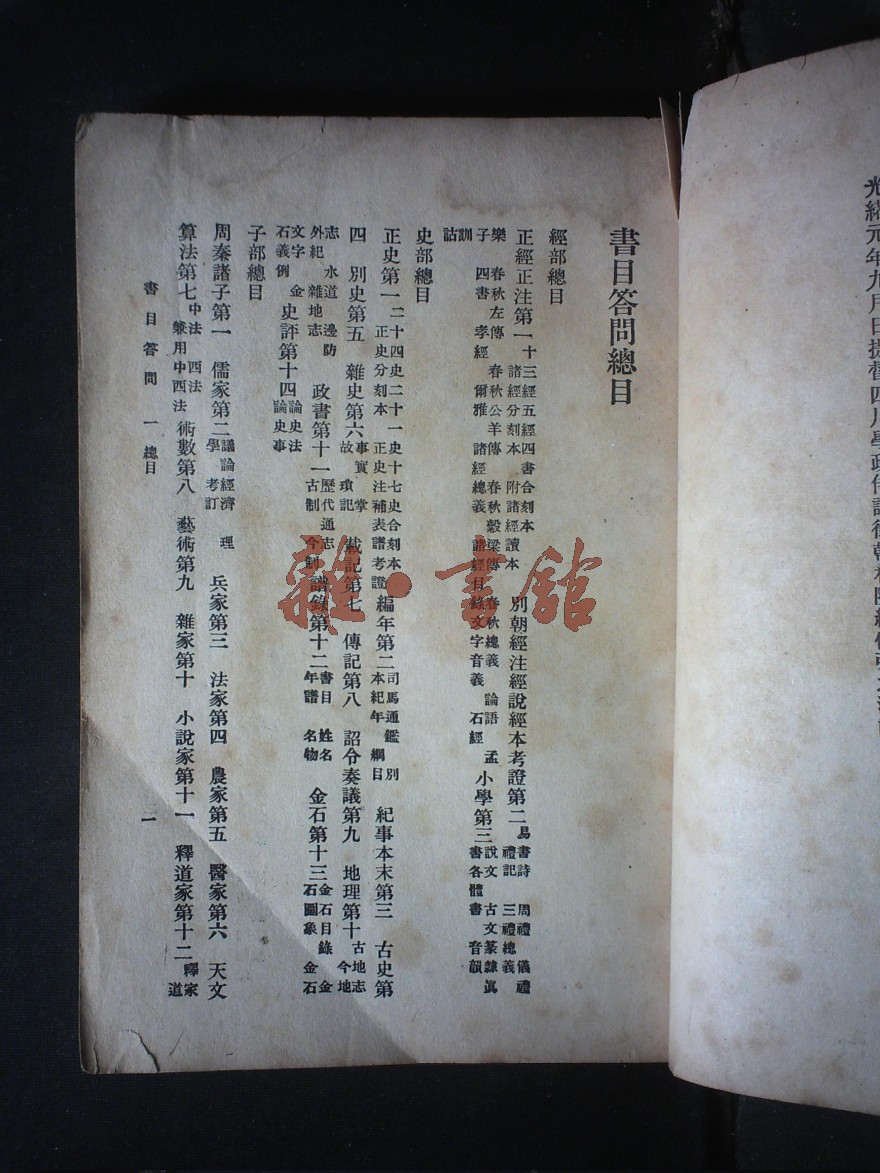 光緒元年九月日提督四川學政侍讀銜
書目答問總目
經部總目
正經正注第一十三經五經四書合刻本 諸經分刻本 附諸經讀本 別朝經注經說經本考證第二易書詩 周禮儀禮 禮記 三禮總義
樂 春秋左傳 春秋公羊傳 春秋穀梁傳 春秋總義 論語 孟子 四書 孝經 爾雅 諸經總義 諸經目錄文字音義 石經 小學第三說文 古文篆隸眞書各體書 音韻
訓詁
史部總目
正史第一二十四史二十一史十七史合刻本 正史分刻本 正史注補表譜考證 編年第二司馬通鑑 別本紀年 綱目 紀事本末第三 古史第
四 別史第五 雜史第六事實 掌故 瑣記 載記第七 傳記第八 詔令奏議第九 地理第十古地志 今地
志 水道 邊防 外紀 雜地志 政書第十一歷代通志 古制 今制 譜錄第十二書目 姓名 年譜 名物 金石第十三金石目錄 金石圖象 金石
文字 金石義例 史評第十四論史法 論史事
子部總目
周秦諸子第一 儒家第二議論經濟 理學 考訂 兵家第三 法家第四 農家第五 醫家第六 天文
算法第七中法 西法 兼用中西法 術數第八 藝術第九 雜家第十 小說家第十一 釋道家第十二釋家 道
書目答問 一 總目
二
雜·書館